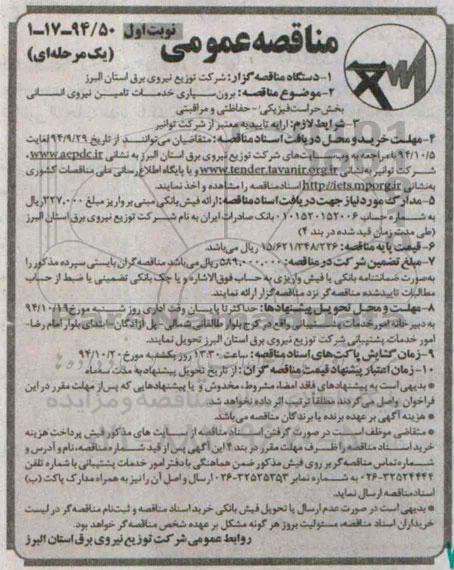 مناقصه عمومی
نوبت اول
۱-۱۷-۹۴/۵۰
(یک مرحله‌ای)
۱-دستگاه مناقصه گزار: شرکت توزیع نیروی برق استان البرز
۲-موضوع مناقصه: برون‌سپاری خدمات تامین نیروی انسانی
بخش حراست فیزیکی؛ - حفاظتی و مراقبتی
۳-شرایط لازم: ارایه تاییدیه معتبر از شرکت توانیر
۴-مهلت خرید و محل دریافت اسناد مناقصه: متقاضیان می‌توانند از تاریخ ۹۴/۹/۲۹ لغایت
۹۴/۱۰/۵ با مراجعه به وب سایت‌های شرکت توزیع نیروی برق استان البرز به نشانی www.aepdc.ir،
شرکت توانیر به‌نشانی www.tender.tavanir.org.ir و یا پایگاه اطلاع‌رسانی ملی مناقصات کشوری
به‌نشانی http://iets.mporg.ir اسناد مناقصه را مشاهده و اخذ نمایند.
۵-مدارک مورد نیاز جهت دریافت اسناد مناقصه: ارائه فیش بانکی مبنی بر واریز مبلغ ۳۲۷،۰۰۰ ریال
به شماره حساب ۰۱۰۱۵۲۰۱۵۲۰۰۶ بانک صادرات ایران به نام شرکت توزیع نیروی برق استان البرز
(طی مدت زمان قید شده در بند ۴)
۶-قیمت پایه مناقصه: ۱۵/۶۲۱/۳۴۸/۲۳۶ ریال می‌باشد.
۷-مبلغ تضمین شرکت در مناقصه: ۵۸۹،۰۰۰،۰۰۰ ریال می‌باشد مناقصه گران بایستی سپرده مذکور را
به‌صورت ضمانتنامه بانکی یا فیش واریزی به حساب فوق‌الاشاره و یا چک بانکی تضمینی یا ضبط از حساب
مطالبات تاییدشده مناقصه گر نزد مناقصه‌گزار ارائه نمایند.
۸-مهلت و محل تحویل پیشنهادها: حداکثر تا پایان وقت اداری روز شنبه مورخ ۹۴/۱۰/۱۹
به دبیرخانه امور خدمات و پشتیبانی واقع در کرج بلوار طالقانی شمالی - پل آزادگان - ابتدای بلوار امام رضا-
امور خدمات پشتیبانی شرکت توزیع نیروی برق استان البرز تحویل نمایند.
۹-زمان گشایش پاکت‌های اسناد مناقصه: ساعت ۱۳:۳۰ روز یکشنبه مورخ ۹۴/۱۰/۲۰
۱۰-زمان اعتبار پیشنهاد قیمت مناقصه گران: از تاریخ تحویل پیشنهاد به مدت سه‌ماه
* بدیهی است به پیشنهادهای فاقد امضاء، مشروط، مخدوش و یا پیشنهادهایی که پس از مهلت مقرر در این
فراخوان واصل می‌گردند، مطلقاً ترتیب اثر داده نخواهد شد.
* هزینه آگهی بر عهده برنده یا برندگان مناقصه می‌باشد.
* متقاضی موظف است در صورت گرفتن اسناد مناقصه از سایت های مذکور فیش پرداخت هزینه
خرید اسناد مناقصه را ظرف مهلت مقرر در بند ۴ این آگهی پس از قید شماره مناقصه، نام و آدرس و
شماره تماس مناقصه گر بر روی فیش مذکور ضمن هماهنگی با دفتر امور خدمات پشتیبانی با شماره تلفن
۰۲۶-۳۲۵۲۴۴۴۴ به شماره نمابر ۰۲۶-۳۲۵۲۵۳۵۳ ارسال و اصل آن را نیز به همراه مدارک پاکت (ب)
اسناد مناقصه ارسال نماید.
* بدیهی است در صورت عدم ارسال یا تحویل فیش بانکی خرید اسناد مناقصه و ثبت‌نام مناقصه‌گر در لیست
خریداران اسناد مناقصه، مسئولیت بروز هر گونه مشکل بر عهده شخص مناقصه گر خواهد بود.
روابط عمومی شرکت توزیع نیروی برق استان البرز